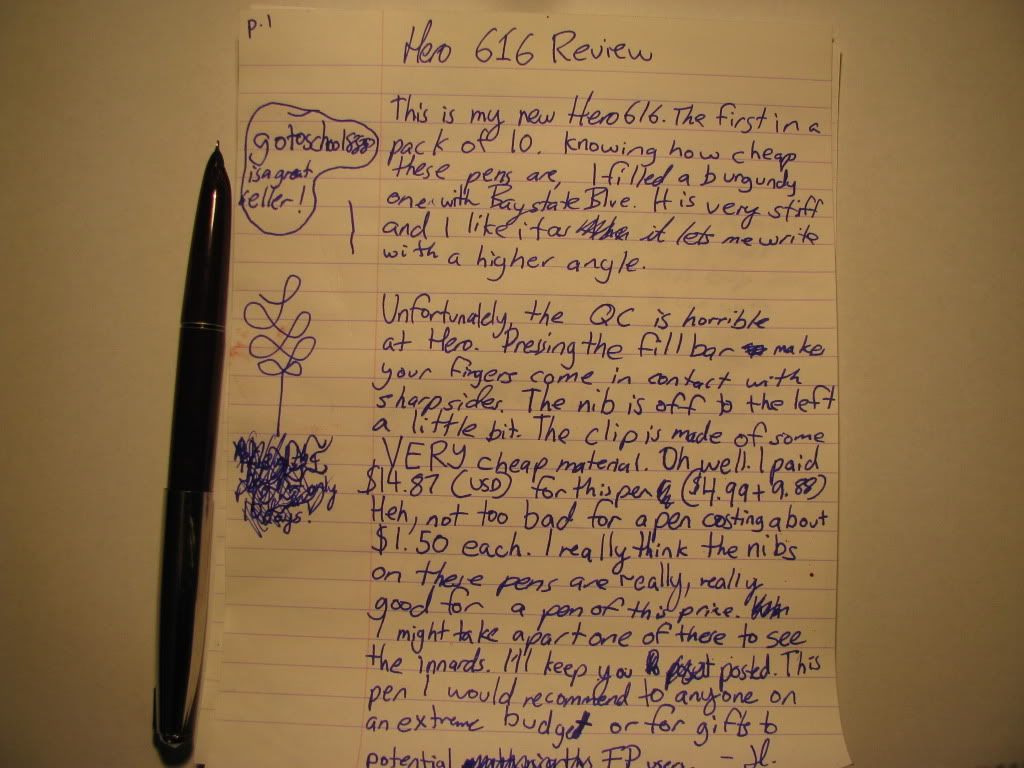 p.1
Hero 616 Review
gotoschool888
is a great
seller!
This is my new Hero 616. The first in a
pack of 10. Knowing how cheap
these pens are, I filled a burgundy
one with Baystate Blue. It is very stiff
and I like it as it lets me write
with a higher angle.
Unfortunately, the QC is horrible
at Hero. Pressing the fill bar make
your fingers come in contact with
sharp sides. The nib is off to the left
a little bit. The clip is made of some
VERY cheap material. Oh well. I paid
$14.87 (USD) for this pen ($4.99 + 9.88)
Heh, not too bad for a pen costing about
$1.50 each. I really think the nibs
on these pens are really, really
good for a pen of this price.
I might take apart one of these to see
the innards. I'll keep you posted. This
pen I would recommend to anyone on
an extreme budget or for gifts to
potential FP users. - JL.